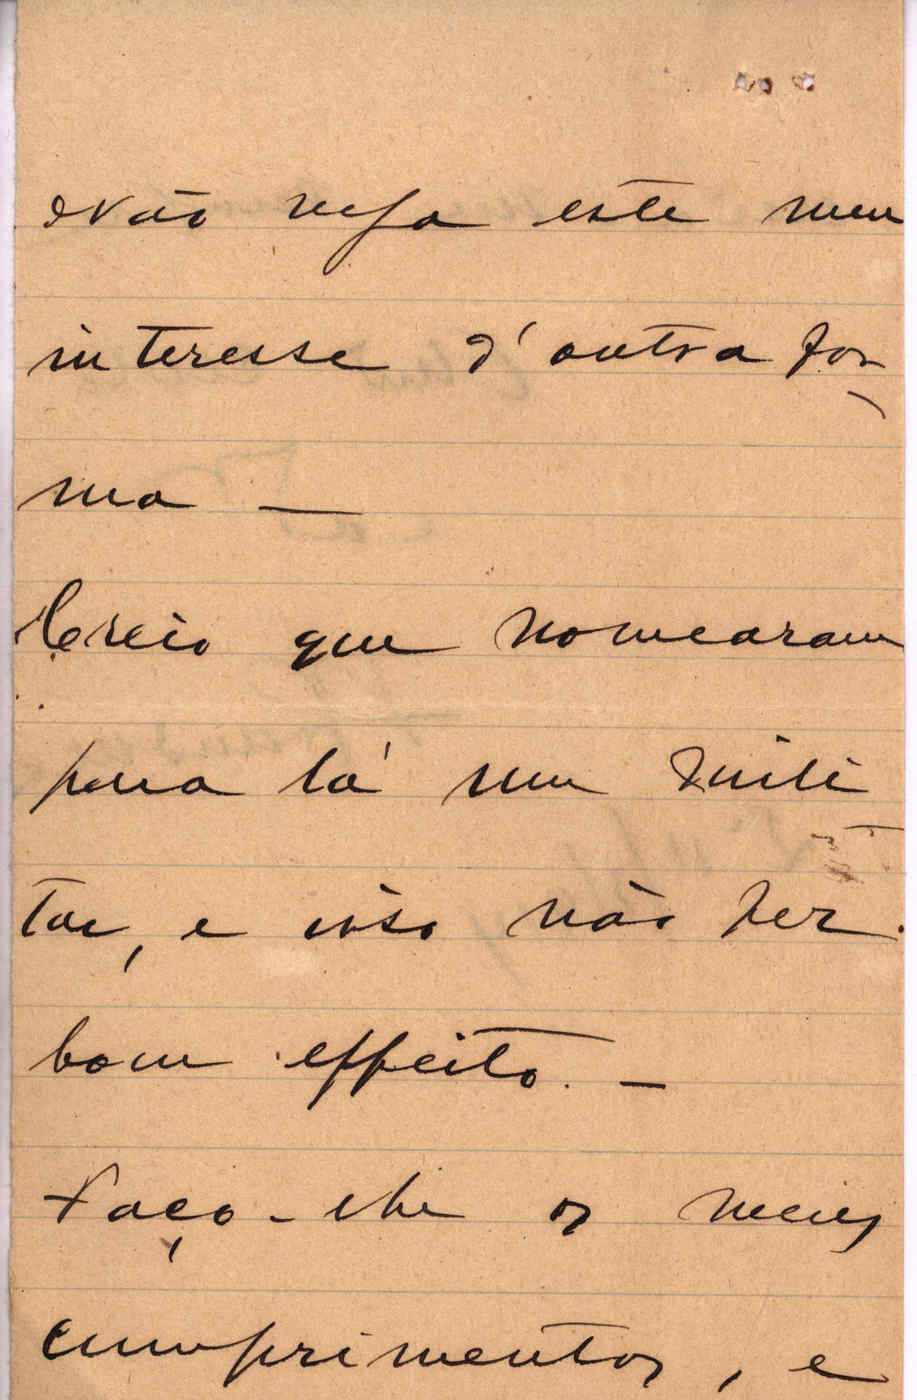 Não veja este meu
interesse d'outra for-
ma —
Creio que nomearam
para lá um mili
tar, e isso não fez
bom effeito. —
Faço-lhe os meus
cumprimentos, e